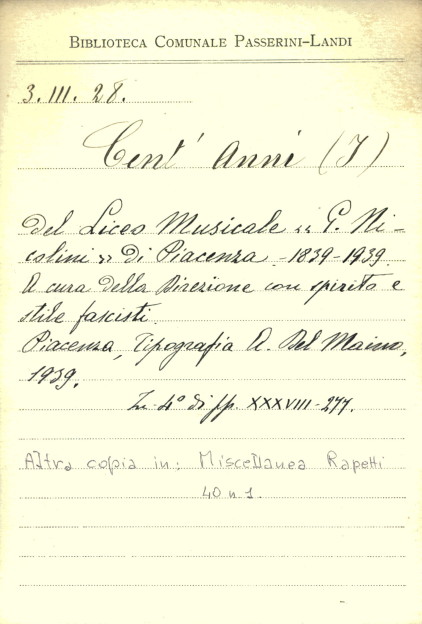 BIBLIOTECA COMUNALE PASSERINI-LANDI
3. III. 28.
Cent' Anni (I)
Del Liceo Musicale « G. Ni-
colini » di Piacenza - 1839-1939
A cura della Direzione con spirito e
stile fascisti.
Piacenza, Tipografia A. Del Maino,
1939.
In 4° di pp. XXXVIII-277.
Altra copia in: Miscellanea Rapetti
40 n 1.